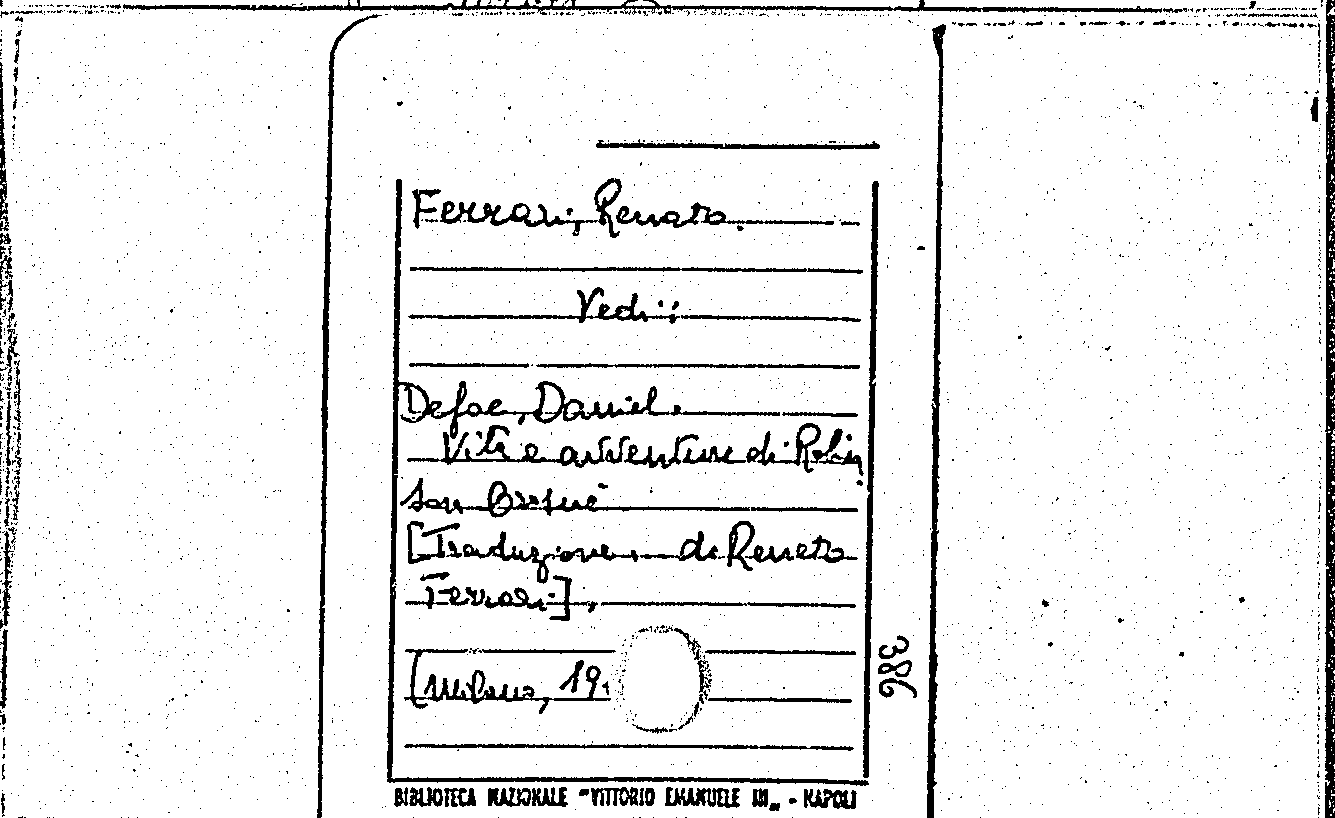 Ferrari, Renato.
Vedi:
Defoe, Daniel.
Vita e avventure di Robin
son Crosuè
[Traduzione di Renato
Ferrari].
[Milano, 19
386
BIBLIOTECA NAZIONALE "VITTORIO EMANUELE III„ - NAPOLI